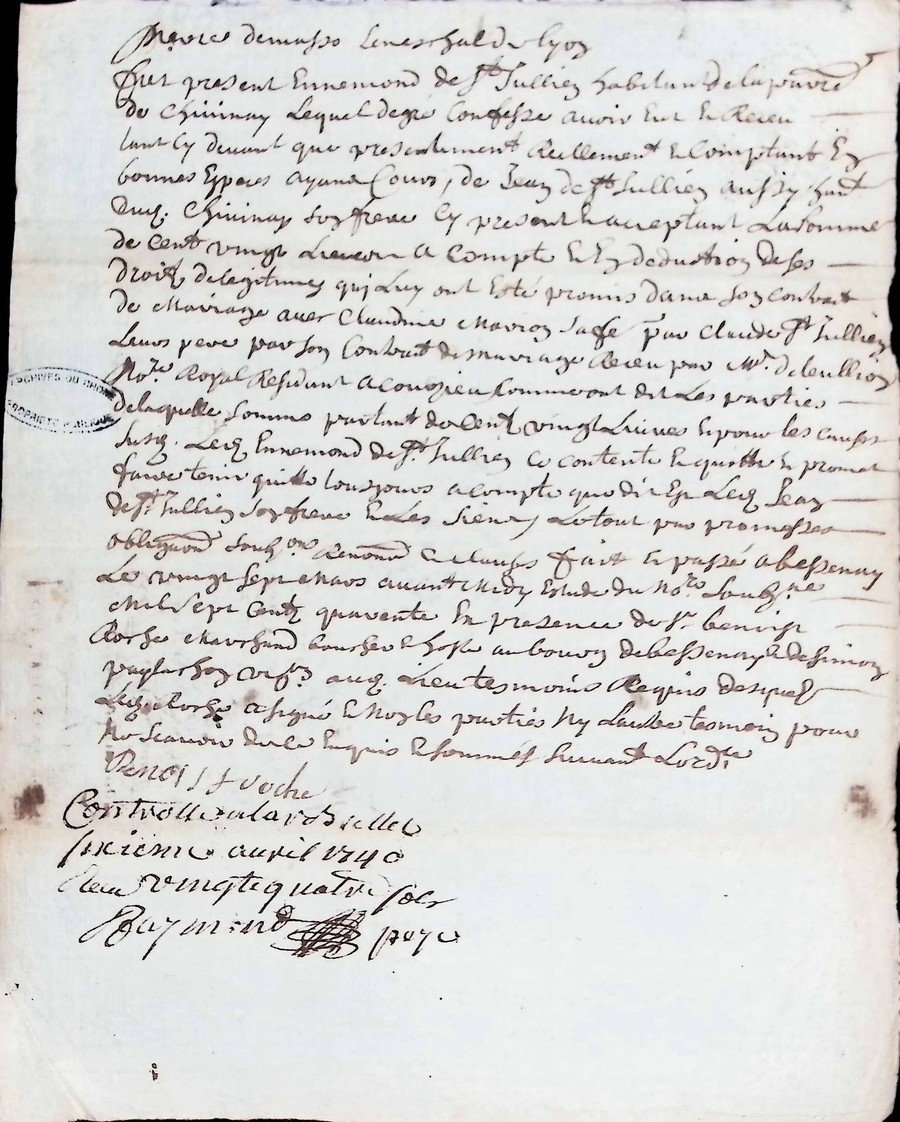 Pierre demasso seneschal de lyon
fut present Ennemond de St Jullien habitant de la parroisse
de Chivinay Lequel de gré Confesse avoir Eut et Receu
tant Cy devant que presentement Reellement et Comptant En
bonnes Especes ayant Cours, de Jean de St Jullien aussy habt
dud. Chivinay son frere Cy present et acceptant La somme
de Cent vingt Livres a Compte et En deduction de ses
droits de legitimes qui Luy ont Esté promis dans son Contract
de Mariage avec Claudine Marion sa fe par Claude St Jullien
Leurs pere par son Contract de mariage Receu par Mr.
No.re Royal Residant a Comme ont dit Les parties
de laquelle somme partant de Cent vingt Livres Et pour les causes
susd. Led. Ennemond de St Jullien Ce contente Et quitte Et promet
faire tenir quitte tousjours a compte que dit Est Led. Jean
de St Jullien son frere Et Les siens, Le tout par promesses
obligaons soubons Renonons Et clauses fait Et passé a bessenay
Le vingt sept Mars avant Midy Estude du No.re soub.ne
Mil sept Cents quarente En presence de Sr. benoist
Roche Marchand boucher et hoste au bourg de bessenay Et de simon
aud. Lieu tesmoins Requis desquels
Led. Roche a signé Et Non les parties Ny Lautre tesmoin pour
Ne scavoir de ce Enquis Et sommés suivant Lord.ce
Benoist Roche
Controllé a larbrelle
sixieme auril 1740
Receu vingt quatre sols
Raymond paye
ARCHIVES DU RHONE
PROPRIETE PUBLIQUE